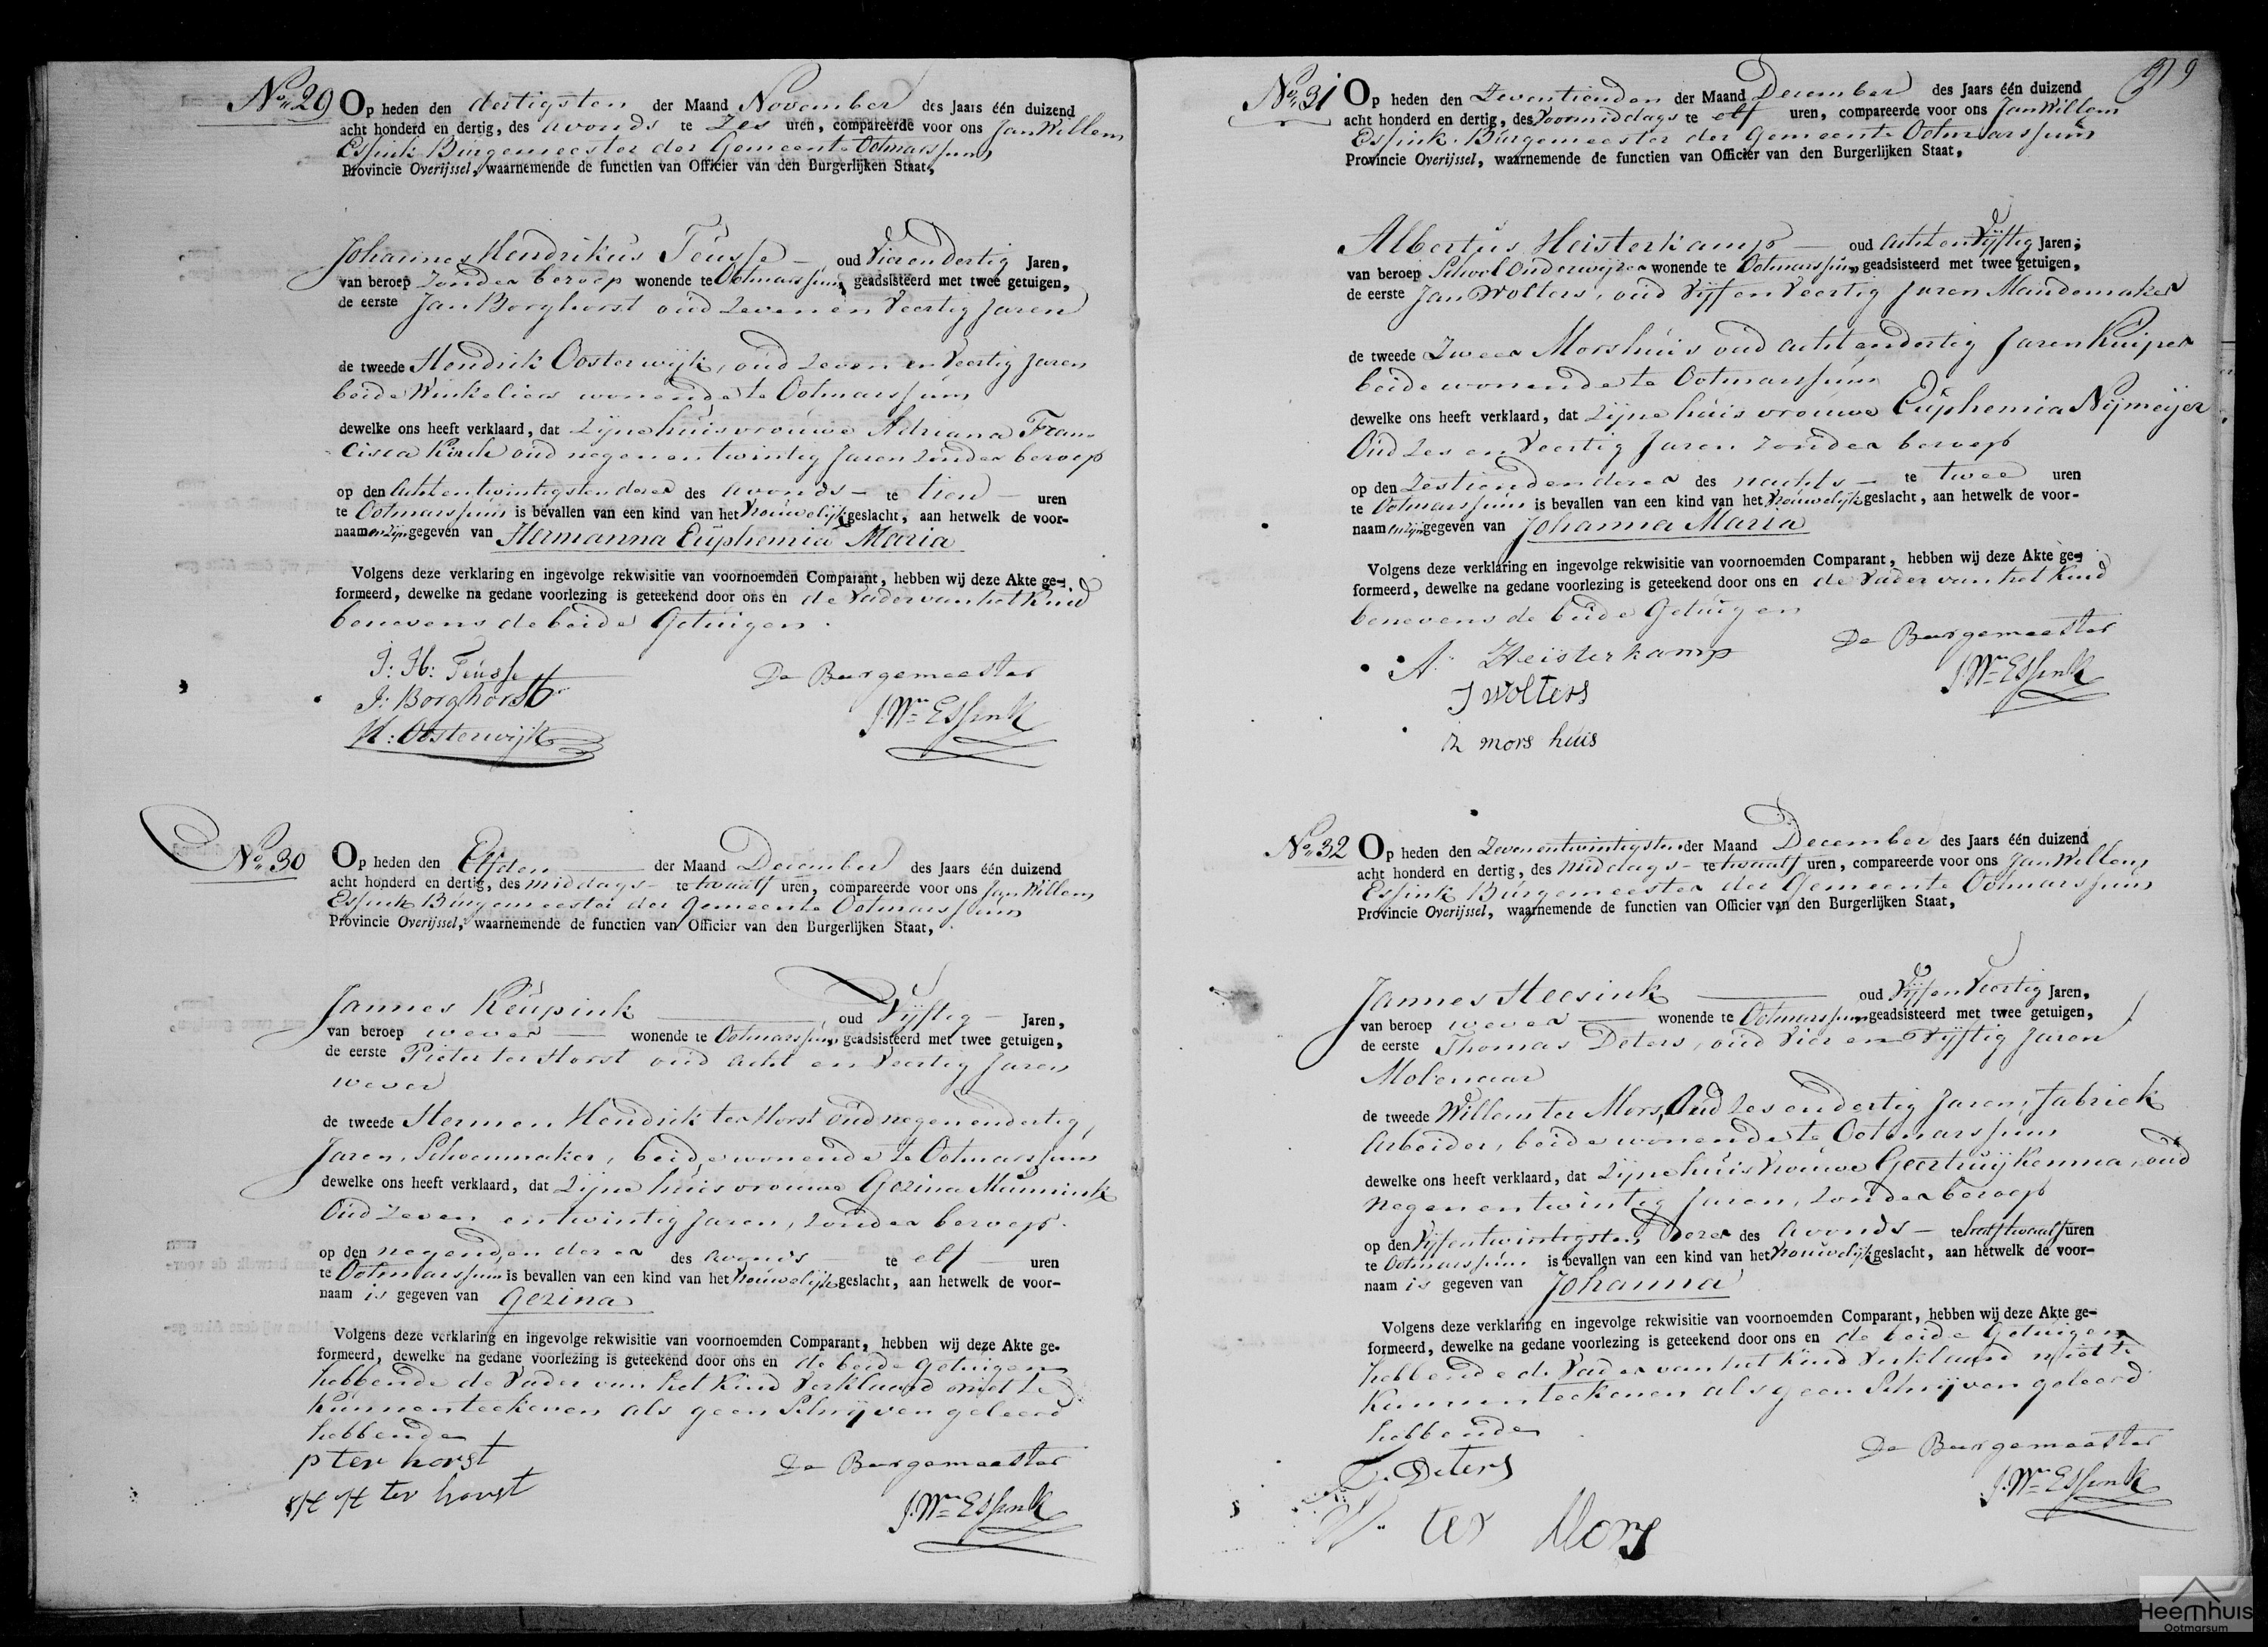 No. 29 Op heden den dertigsten der Maand November des Jaars één duizend
acht honderd en dertig, des avonds te zes uren, compareerde voor ons Jan Willem
Essink Burgemeester der Gemeente Ootmarssum
Provincie Overijssel, waarnemende de functien van Officier van den Burgerlijken Staat,
Johannes Hendrikus Teusse oud Vierendertig Jaren,
van beroep zonder beroep wonende te Ootmarssum geadsisteerd met twee getuigen,
de eerste Jan Borghorst oud zeven en veertig Jaren
de tweede Hendrik Oosterwijk, oud zeven en veertig Jaren
beide Winkeliers wonende te Ootmarssum
dewelke ons heeft verklaard, dat zijne huisvrouwe Adriana Fran-
cisca oud negen en twintig Jaren zonder beroep
op den achtentwintigsten dezer des avonds te tien uren
te Ootmarssum is bevallen van een kind van het Vrouwelijk geslacht, aan hetwelk de voor-
naamen zijn gegeven van Hermanna Euphemia Maria
Volgens deze verklaring en ingevolge rekwisitie van voornoemden Comparant, hebben wij deze Akte ge-
formeerd, dewelke na gedane voorlezing is geteekend door ons en de Vader van het Kind
benevens de beide Getuigen.
J: H: Teusse
J: Borghorst
H: Oosterwijk
De Burgemeester
J. Wm Essink
No. 30 Op heden den Elfden der Maand December des Jaars één duizend
acht honderd en dertig, des middags te twaalf uren, compareerde voor ons Jan Willem
Essink Burgemeester der Gemeente Ootmarssum
Provincie Overijssel, waarnemende de functien van Officier van den Burgerlijken Staat,
Jannes Keupink oud Vijftig Jaren,
van beroep wever wonende te Ootmarssum geadsisteerd met twee getuigen,
de eerste Pieter ter Horst oud acht en veertig Jaren
wever
de tweede Hermen Hendrik ter Horst oud negenendertig
Jaren, Schoenmaker, beide wonende te Ootmarssum
dewelke ons heeft verklaard, dat zijne huisvrouwe Gezina Munnink
Oud zeven en twintig Jaren, zonder beroep.
op den negenden dezer des avonds te elf uren
te Ootmarssum is bevallen van een kind van het Vrouwelijk geslacht, aan hetwelk de voor-
naam is gegeven van Gezina
Volgens deze verklaring en ingevolge rekwisitie van voornoemden Comparant, hebben wij deze Akte ge-
formeerd, dewelke na gedane voorlezing is geteekend door ons en de beide Getuigen
hebbende de Vader van het Kind Verklaard niet te
kunnen teekenen als geen Schrijven geleerd
hebbende
p ter horst
H H ter horst
De Burgemeester
J. Wm Essink
No. 31 Op heden den Zeventienden der Maand December des Jaars één duizend
acht honderd en dertig, des Voormiddags te elf uren, compareerde voor ons Jan Willem
Essink Burgemeester der Gemeente Ootmarssum
Provincie Overijssel, waarnemende de functien van Officier van den Burgerlijken Staat,
Albertus Heisterkamp oud achtenvijftig Jaren,
van beroep School Onderwijzer wonende te Ootmarssum geadsisteerd met twee getuigen,
de eerste Jan Wolters, oud Vijf en Veertig Jaren Mandemaker
de tweede Zweer Morshuis oud acht en dertig Jaren Kuiper
beide wonende te Ootmarssum
dewelke ons heeft verklaard, dat zijne huisvrouwe Euphemia Nijmeijer
Oud Zes en Veertig Jaren zonder beroep
op den Zestienden dezer des nachts te twee uren
te Ootmarssum is bevallen van een kind van het Vrouwelijk geslacht, aan hetwelk de voor-
naamen zijn gegeven van Johanna Maria
Volgens deze verklaring en ingevolge rekwisitie van voornoemden Comparant, hebben wij deze Akte ge-
formeerd, dewelke na gedane voorlezing is geteekend door ons en de Vader van het Kind
benevens de beide Getuigen
A. Heisterkamp
J Wolters
Z mors huis
De Burgemeester
J. Wm Essink
No. 32 Op heden den Zevenentwintigsten der Maand December des Jaars één duizend
acht honderd en dertig, des middags te twaalf uren, compareerde voor ons Jan Willem
Essink Burgemeester der Gemeente Ootmarssum
Provincie Overijssel, waarnemende de functien van Officier van den Burgerlijken Staat,
Jannes Heesink oud Vijfen Veertig Jaren,
van beroep wever wonende te Ootmarssum geadsisteerd met twee getuigen,
de eerste Thomas Deters, oud Vier en Vijftig Jaren
Molenaar
de tweede Willem ter Mors, Oud Zes en dertig Jaren, fabriek
Arbeider, beide wonende te Ootmarssum
dewelke ons heeft verklaard, dat zijne huisvrouwe Geertruij Kemna, oud
negen en twintig Jaren, zonder beroep
op den Vijfentwintigsten dezer des avonds te half twaalf uren
te Ootmarssum is bevallen van een kind van het Vrouwelijk geslacht, aan hetwelk de voor-
naam is gegeven van Johanna
Volgens deze verklaring en ingevolge rekwisitie van voornoemden Comparant, hebben wij deze Akte ge-
formeerd, dewelke na gedane voorlezing is geteekend door ons en de beide Getuigen
hebbende de Vader van het Kind Verklaard niet te
kunnen teekenen als geen Schrijven geleerd
hebbende
T. Deters
W. ter Mors
De Burgemeester
J. Wm Essink
Heemhuis
Ootmarsum